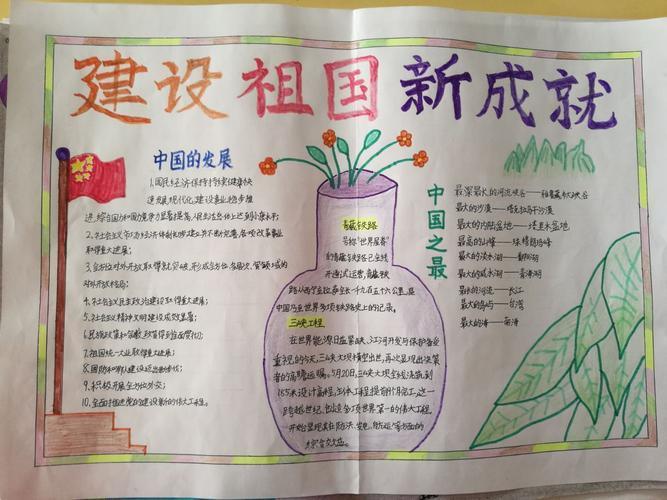 建设祖国新成就
中国的发展
1、国民经济保持持续健康快
速发展,现代化建设事业稳步推
进,综合国力和国力竞争力显著提高,人民生活总体上达到小康水平;
2、社会主义市场经济体制初步建立并不断完善,各项改革事业
取得重大进展;
3、全方位对外开放取得新突破,形成全方位、多层次、宽领域的
对外开放格局;
4、社会主义民主政治建设取得重大进展;
5、社会主义精神文明建设成效显著;
6、民族政策和宗教政策得到全面贯彻;
7、祖国统一大业取得重大进展;
8、国防和军队建设迈出新步伐;
9、积极开展全方位外交;
10、全面推进党的建设新的伟大工程。
青藏铁路
号称“世界屋脊”
的青藏铁路已全线
开通试运营,青藏铁
路从西宁至拉萨全长一千九百五十六公里,是
中国乃至世界多项铁路史上的记录。
三峡工程
在世界能源日益紧缺,江河开发与保护备受
重视的今天,三峡大坝横空出世,再次显现出决策
者的高瞻远瞩。5月20日,三峡大坝全线浇筑到
185米设计高程,主体工程提前竣工,这一
跨越世纪、创造多项世界第一的伟大工程,
开始显现其在防洪、发电、航运等方面的
综合效益。
中国之最
最深最长的河流峡谷——雅鲁藏布大峡谷
最大的沙漠——塔克拉玛干沙漠
最大的内陆盆地——塔里木盆地
最高的山峰——珠穆朗玛峰
最大的淡水湖——鄱阳湖
最大的咸水湖——青海湖
最长的河流——长江
最大的岛屿——台湾
最大的海——南海